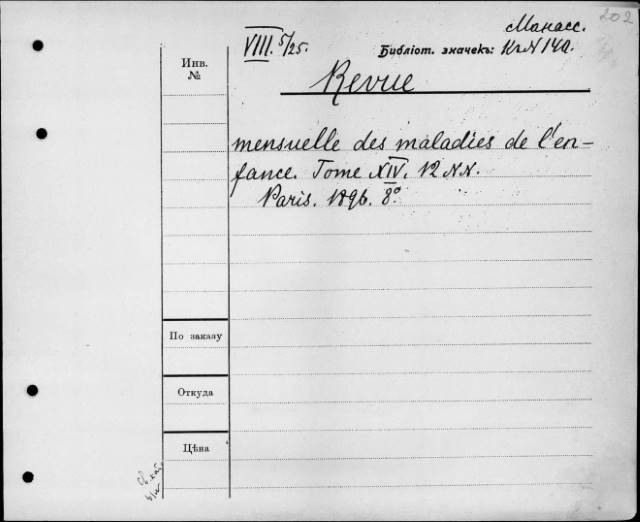 202
Манасс.
VIII. 5/25.
Библіот. значекъ: Кг N 140.
Инв.
№
Revue
mensuelle des maladies de l'en-
fance. Tome XIV. 12 N.N.
Paris. 1896. 8°
По заказу
Откуда
Цѣна